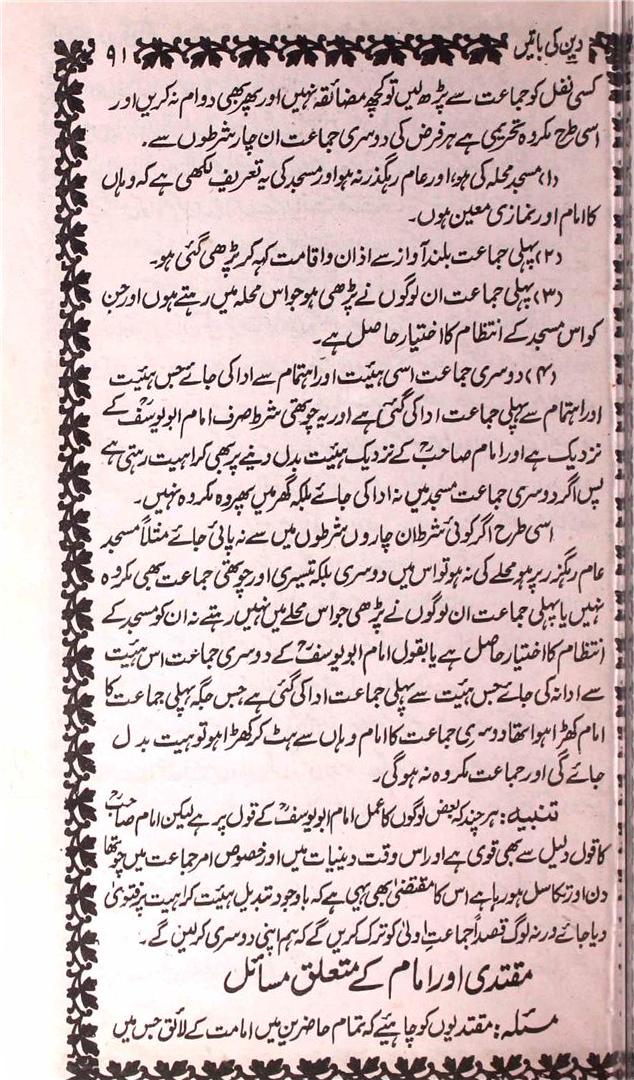 دین کی باتیں
۹۱
کسی نفل کو جماعت سے پڑھ لیں تو کچھ مضائقہ نہیں اور پھر بھی دوام نہ کریں اور
اسی طرح مکروہ تحریمی ہے ہر فرض کی دوسری جماعت ان چار شرطوں سے۔
(۱) مسجد محلہ کی ہو، اور عام رہگذر نہ ہو اور مسجد کی یہ تعریف لکھی ہے کہ وہاں
کا امام اور نمازی معین ہوں۔
(۲) پہلی جماعت بلند آواز سے اذان و اقامت کہہ کر پڑھی گئی ہو۔
(۳) پہلی جماعت ان لوگوں نے پڑھی ہو جو اس محلہ میں رہتے ہوں اور جن
کو اس مسجد کے انتظام کا اختیار حاصل ہے۔
(۴) دوسری جماعت اسی ہیئت اور اہتمام سے ادا کی جائے جس ہیئت
اور اہتمام سے پہلی جماعت ادا کی گئی ہے اور یہ چوتھی شرط صرف امام ابو یوسفؒ کے
نزدیک ہے اور امام صاحبؒ کے نزدیک ہیئت بدل دینے پر بھی کراہیت رہتی ہے
پس اگر دوسری جماعت مسجد میں نہ ادا کی جائے بلکہ گھر میں پھر وہ مکروہ نہیں۔
اسی طرح اگر کوئی شرط ان چاروں شرطوں میں سے نہ پائی جائے مثلاً مسجد
عام رہگزر پر ہو محلے کی نہ ہو تو اس میں دوسری بلکہ تیسری اور چوتھی جماعت بھی مکروہ
نہیں یا پہلی جماعت ان لوگوں نے پڑھی جو اس محلے میں نہیں رہتے نہ ان کو مسجد کے
انتظام کا اختیار حاصل ہے یا بقول امام ابو یوسفؒ کے دوسری جماعت اس ہیئت
سے ادا نہ کی جائے جس ہیئت سے پہلی جماعت ادا کی گئی ہے جس جگہ پہلی جماعت کا
امام کھڑا ہوا تھا دوسری جماعت کا امام وہاں سے ہٹ کر کھڑا ہو تو ہیت بدل
جائے گی اور جماعت مکروہ نہ ہو گی۔
تنبیہ: ہر چند کہ بعض لوگوں کا عمل امام ابو یوسفؒ کے قول پر ہے لیکن امام صاحبؒ
کا قول دلیل سے بھی قوی ہے اور اس وقت دینیات میں اور خصوص امر جماعت میں جو تھا
دن اور تکاسل ہو رہا ہے اس کا مقتضیٰ بھی یہی ہے کہ باوجود تبدیل ہیئت کراہیت پر فتویٰ
دیا جائے ورنہ لوگ قصداً جماعتِ اولیٰ کو ترک کریں گے کہ ہم اپنی دوسری کر لیں گے۔
مقتدی اور امام کے متعلق مسائل
مسئلہ: مقتدیوں کو چاہیئے کہ تمام حاضرین میں امامت کے لائق جس میں